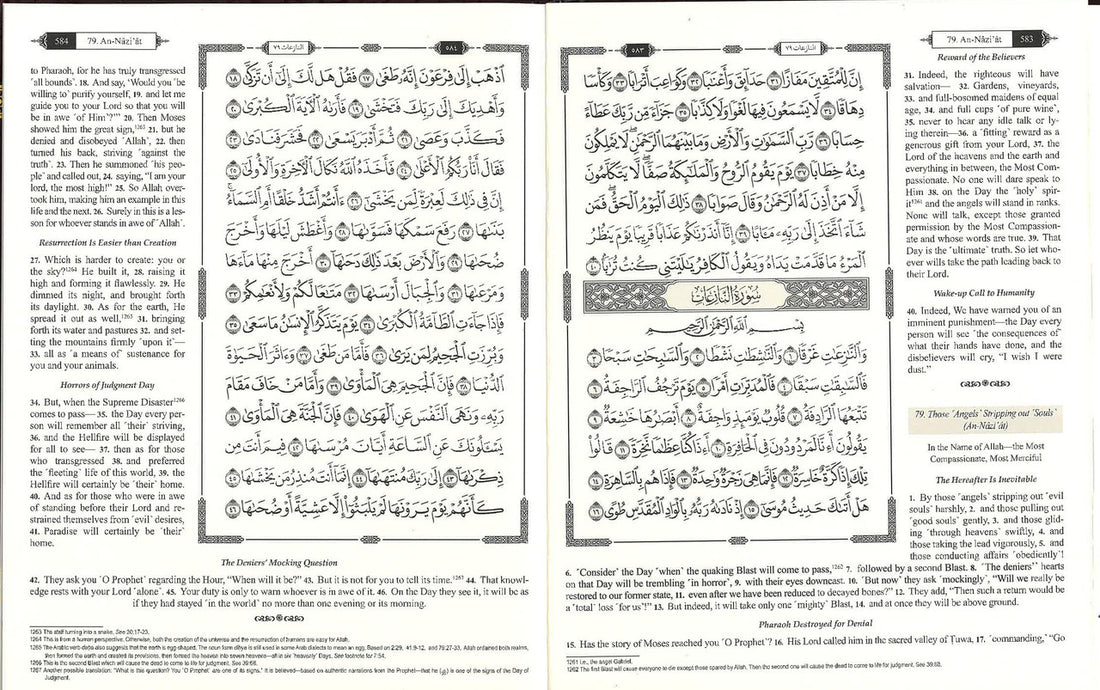 79. An-Nâzi'ât 583
النازعات ٧٩
٥٨٣
إِنَّ لِلْمُتَّقِينَ مَفَازًا ٣١ حَدَائِقَ وَأَعْنَابًا ٣٢ وَكَوَاعِبَ أَتْرَابًا ٣٣ وَكَأْسًا
دِهَاقًا ٣٤ لَّا يَسْمَعُونَ فِيهَا لَغْوًا وَلَا كِذَّابًا ٣٥ جَزَاءً مِّن رَّبِّكَ عَطَاءً
حِسَابًا ٣٦ رَّبِّ السَّمَٰوَٰتِ وَالْأَرْضِ وَمَا بَيْنَهُمَا الرَّحْمَٰنِ لَا يَمْلِكُونَ
مِنْهُ خِطَابًا ٣٧ يَوْمَ يَقُومُ الرُّوحُ وَالْمَلَٰئِكَةُ صَفًّا لَّا يَتَكَلَّمُونَ
إِلَّا مَنْ أَذِنَ لَهُ الرَّحْمَٰنُ وَقَالَ صَوَابًا ٣٨ ذَٰلِكَ الْيَوْمُ الْحَقُّ فَمَن
شَاءَ اتَّخَذَ إِلَىٰ رَبِّهِ مَـَٔابًا ٣٩ إِنَّا أَنذَرْنَٰكُمْ عَذَابًا قَرِيبًا يَوْمَ يَنظُرُ
الْمَرْءُ مَا قَدَّمَتْ يَدَاهُ وَيَقُولُ الْكَافِرُ يَٰلَيْتَنِي كُنتُ تُرَٰبًا ٤٠
سُورَةُ النَّازِعَاتِ
بِسْمِ اللَّهِ الرَّحْمَٰنِ الرَّحِيمِ
وَالنَّٰزِعَٰتِ غَرْقًا ١ وَالنَّٰشِطَٰتِ نَشْطًا ٢ وَالسَّٰبِحَٰتِ سَبْحًا ٣
فَالسَّٰبِقَٰتِ سَبْقًا ٤ فَالْمُدَبِّرَٰتِ أَمْرًا ٥ يَوْمَ تَرْجُفُ الرَّاجِفَةُ ٦
تَتْبَعُهَا الرَّادِفَةُ ٧ قُلُوبٌ يَوْمَئِذٍ وَاجِفَةٌ ٨ أَبْصَٰرُهَا خَٰشِعَةٌ ٩
يَقُولُونَ أَءِنَّا لَمَرْدُودُونَ فِي الْحَافِرَةِ ١٠ أَءِذَا كُنَّا عِظَٰمًا نَّخِرَةً ١١ قَالُوا
تِلْكَ إِذًا كَرَّةٌ خَاسِرَةٌ ١٢ فَإِنَّمَا هِيَ زَجْرَةٌ وَٰحِدَةٌ ١٣ فَإِذَا هُم بِالسَّاهِرَةِ ١٤
هَلْ أَتَىٰكَ حَدِيثُ مُوسَىٰ ١٥ إِذْ نَادَىٰهُ رَبُّهُ بِالْوَادِ الْمُقَدَّسِ طُوًى ١٦
Reward of the Believers
31. Indeed, the righteous will have
salvation— 32. Gardens, vineyards,
33. and full-bosomed maidens of equal
age, 34. and full cups ˹of pure wine˺,
35. never to hear any idle talk or ly-
ing therein—36. a ˹fitting˺ reward as a
generous gift from your Lord, 37. the
Lord of the heavens and the earth and
everything in between, the Most Com-
passionate. No one will dare speak to
Him 38. on the Day the ˹holy˺ spir-
it1261 and the angels will stand in ranks.
None will talk, except those granted
permission by the Most Compassion-
ate and whose words are true. 39. That
Day is the ˹ultimate˺ truth. So let who-
ever wills take the path leading back to
their Lord.
Wake-up Call to Humanity
40. Indeed, We have warned you of an
imminent punishment—the Day every
person will see ˹the consequences of˺
what their hands have done, and the
disbelievers will cry, “I wish I were
dust.”
79. Those ˹Angels˺ Stripping out ˹Souls˺
(An-Nâzi'ât)
In the Name of Allah—the Most
Compassionate, Most Merciful
The Hereafter Is Inevitable
1. By those ˹angels˺ stripping out ˹evil
souls˺ harshly, 2. and those pulling out
˹good souls˺ gently, 3. and those glid-
ing ˹through heavens˺ swiftly, 4. and
those taking the lead vigorously, 5. and
those conducting affairs ˹obediently˺!
6. ˹Consider˺ the Day ˹when˺ the quaking Blast will come to pass,1262 7. followed by a second Blast. 8. ˹The deniers'˺ hearts
on that Day will be trembling ˹in horror˺, 9. with their eyes downcast. 10. ˹But now˺ they ask ˹mockingly˺, “Will we really be
restored to our former state, 11. even after we have been reduced to decayed bones?” 12. They add, “Then such a return would be
a ˹total˺ loss ˹for us˺!” 13. But indeed, it will take only one ˹mighty˺ Blast, 14. and at once they will be above ground.
Pharaoh Destroyed for Denial
15. Has the story of Moses reached you ˹O Prophet˺? 16. His Lord called him in the sacred valley of Ṭuwa, 17. ˹commanding,˺ “Go
1261 i.e., the angel Gabriel.
1262 The first Blast will cause everyone to die except those spared by Allah. Then the second one will cause the dead to come to life for judgment. See 39:68.
584 79. An-Nâzi'ât
النازعات ٧٩
٥٨٤
اذْهَبْ إِلَىٰ فِرْعَوْنَ إِنَّهُ طَغَىٰ ١٧ فَقُلْ هَل لَّكَ إِلَىٰ أَن تَزَكَّىٰ ١٨
وَأَهْدِيَكَ إِلَىٰ رَبِّكَ فَتَخْشَىٰ ١٩ فَأَرَىٰهُ الْآيَةَ الْكُبْرَىٰ ٢٠
فَكَذَّبَ وَعَصَىٰ ٢١ ثُمَّ أَدْبَرَ يَسْعَىٰ ٢٢ فَحَشَرَ فَنَادَىٰ ٢٣
فَقَالَ أَنَا۠ رَبُّكُمُ الْأَعْلَىٰ ٢٤ فَأَخَذَهُ اللَّهُ نَكَالَ الْآخِرَةِ وَالْأُولَىٰ ٢٥
إِنَّ فِي ذَٰلِكَ لَعِبْرَةً لِّمَن يَخْشَىٰ ٢٦ ءَأَنتُمْ أَشَدُّ خَلْقًا أَمِ السَّمَاءُ
بَنَىٰهَا ٢٧ رَفَعَ سَمْكَهَا فَسَوَّىٰهَا ٢٨ وَأَغْطَشَ لَيْلَهَا وَأَخْرَجَ
ضُحَىٰهَا ٢٩ وَالْأَرْضَ بَعْدَ ذَٰلِكَ دَحَىٰهَا ٣٠ أَخْرَجَ مِنْهَا مَاءَهَا
وَمَرْعَىٰهَا ٣١ وَالْجِبَالَ أَرْسَىٰهَا ٣٢ مَتَٰعًا لَّكُمْ وَلِأَنْعَٰمِكُمْ ٣٣
فَإِذَا جَاءَتِ الطَّامَّةُ الْكُبْرَىٰ ٣٤ يَوْمَ يَتَذَكَّرُ الْإِنسَٰنُ مَا سَعَىٰ ٣٥
وَبُرِّزَتِ الْجَحِيمُ لِمَن يَرَىٰ ٣٦ فَأَمَّا مَن طَغَىٰ ٣٧ وَءَاثَرَ الْحَيَوٰةَ
الدُّنْيَا ٣٨ فَإِنَّ الْجَحِيمَ هِيَ الْمَأْوَىٰ ٣٩ وَأَمَّا مَنْ خَافَ مَقَامَ
رَبِّهِ وَنَهَى النَّفْسَ عَنِ الْهَوَىٰ ٤٠ فَإِنَّ الْجَنَّةَ هِيَ الْمَأْوَىٰ ٤١
يَسْـَٔلُونَكَ عَنِ السَّاعَةِ أَيَّانَ مُرْسَىٰهَا ٤٢ فِيمَ أَنتَ مِن
ذِكْرَىٰهَا ٤٣ إِلَىٰ رَبِّكَ مُنتَهَىٰهَا ٤٤ إِنَّمَا أَنتَ مُنذِرُ مَن يَخْشَىٰهَا ٤٥
كَأَنَّهُمْ يَوْمَ يَرَوْنَهَا لَمْ يَلْبَثُوا إِلَّا عَشِيَّةً أَوْ ضُحَىٰهَا ٤٦
to Pharaoh, for he has truly transgressed
˹all bounds˺. 18. And say, ‘Would you ˹be
willing to˺ purify yourself, 19. and let me
guide you to your Lord so that you will
be in awe ˹of Him˺?’” 20. Then Moses
showed him the great sign,1263 21. but he
denied and disobeyed ˹Allah˺, 22. then
turned his back, striving ˹against the
truth˺. 23. Then he summoned ˹his peo-
ple˺ and called out, 24. saying, “I am your
lord, the most high!” 25. So Allah over-
took him, making him an example in this
life and the next. 26. Surely in this is a les-
son for whoever stands in awe of ˹Allah˺.
Resurrection Is Easier than Creation
27. Which is harder to create: you or
the sky?1264 He built it, 28. raising it
high and forming it flawlessly. 29. He
dimmed its night, and brought forth
its daylight. 30. As for the earth, He
spread it out as well,1265 31. bringing
forth its water and pastures 32. and set-
ting the mountains firmly ˹upon it˺—
33. all as ˹a means of˺ sustenance for
you and your animals.
Horrors of Judgment Day
34. But, when the Supreme Disaster1266
comes to pass—35. the Day every per-
son will remember all ˹their˺ striving,
36. and the Hellfire will be displayed
for all to see— 37. then as for those
who transgressed 38. and preferred
the ˹fleeting˺ life of this world, 39. the
Hellfire will certainly be ˹their˺ home.
40. And as for those who were in awe
of standing before their Lord and re-
strained themselves from ˹evil˺ desires,
41. Paradise will certainly be ˹their˺
home.
The Deniers' Mocking Question
42. They ask you ˹O Prophet˺ regarding the Hour, “When will it be?” 43. But it is not for you to tell its time.1267 44. That knowl-
edge rests with your Lord ˹alone˺. 45. Your duty is only to warn whoever is in awe of it. 46. On the Day they see it, it will be as
if they had stayed ˹in the world˺ no more than one evening or its morning.
1263 The staff turning into a snake. See 20:17-23.
1264 This is from a human perspective. Otherwise, both the creation of the universe and the resurrection of humans are easy for Allah.
1265 The Arabic verb daḥa also suggests that the earth is egg-shaped. The noun form diḥya is still used in some Arab dialects to mean an egg. Based on 2:29, 41:9-12, and 79:27-33, Allah ordained both realms,
then formed the earth and created its provisions, then formed the seven heavens—all in six ˹heavenly˺ Days. See footnote for 7:54.
1266 This is the second Blast which will cause the dead to come to life for judgment. See 39:68.
1267 Another possible translation: “What is this question? You ˹O Prophet˺ are one of its signs.” It is believed—based on authentic narrations from the Prophet—that he (ﷺ) is one of the signs of the Day of
Judgment.